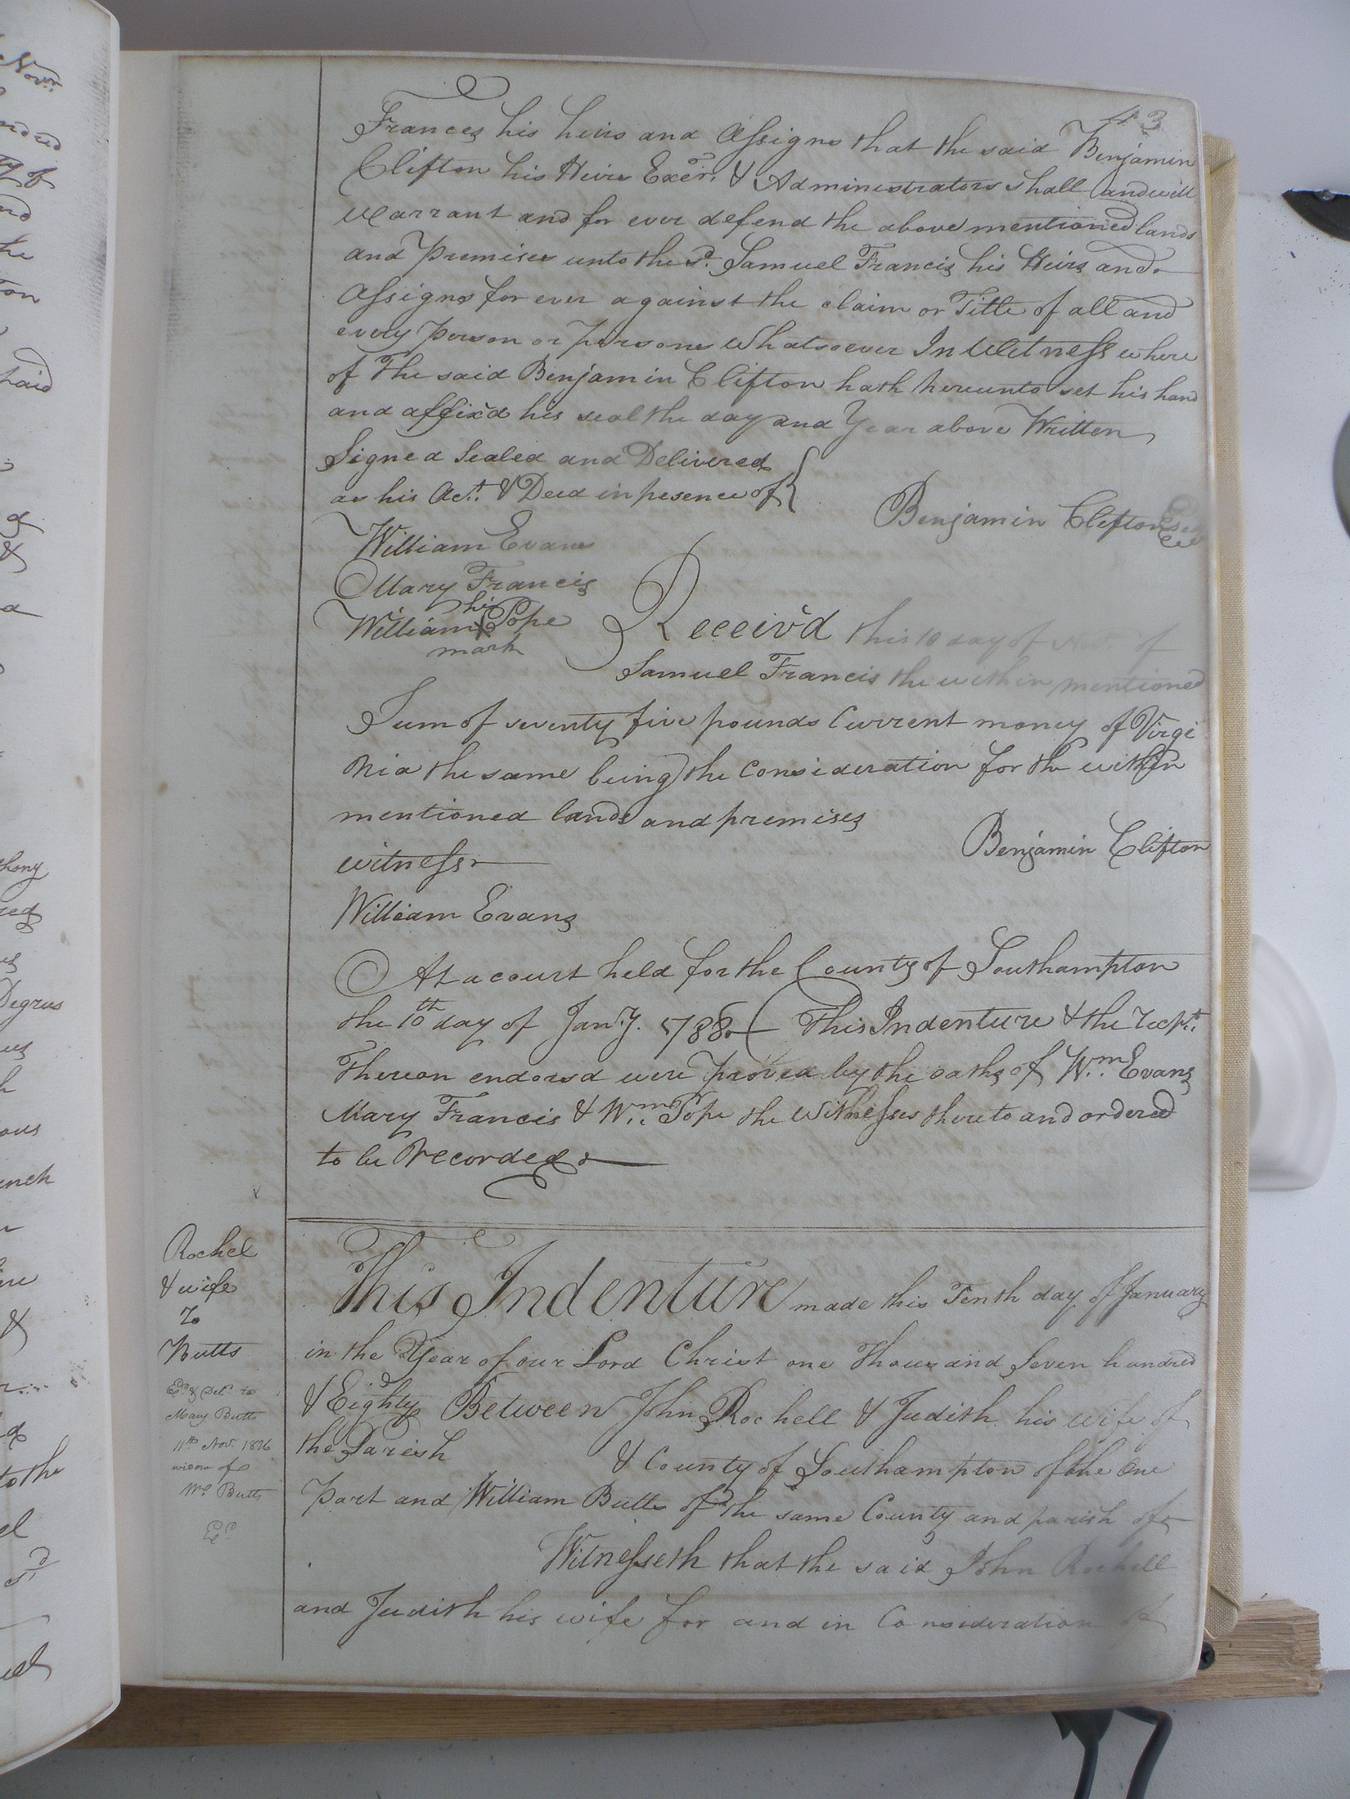 43
Frances his heirs and Assigns that the said Benjamin
Clifton his Heirs Exērs. & Administrators shall and will
Warrant and for ever defend the above mentioned lands
and Premises unto the sd. Samuel Francis his Heirs and
Assigns for ever against the claim or Title of all and
every Person or persons Whatsoever In Witness where
of The said Benjamin Clifton hath hereunto set his hand
and affix'd his seal the day and Year above Written
Signed Sealed and Delivered
as his Act. & Deed in presence of
Benjamin Clifton Seal
William Evans
Mary Francis
his
William X Pope
mark
Receiv'd this 10 day of Novr. of
Samuel Francis the within mentioned
Sum of seventy five pounds Current money of Virgi
nia the same being the Consideration for the within
mentioned lands and premises
Benjamin Clifton
witness
William Evans
At a court held for the County of Southampton
the 10th day of Jany. 1788 This Indenture & the Rect.
Thereon endorsd were proved by the oaths of Wm. Evans
Mary Francis & Wm. Pope the Witnesses thereto and ordered
to be Recorded
Rochel
& wife
To
Butts
Ex'd & Del'd to
Mary Butts
11th Nov. 1826
widow of
Wm. Butts
This Indenture made this Tenth day of January
in the Year of our Lord Christ one Thousand Seven hundred
& Eighty Between John Rochell & Judith his wife of
the Parish & County of Southampton of the One
Part and William Butts of the same County and parish of
Witnesseth that the said John Rochell
and Judith his wife for and in Consideration of